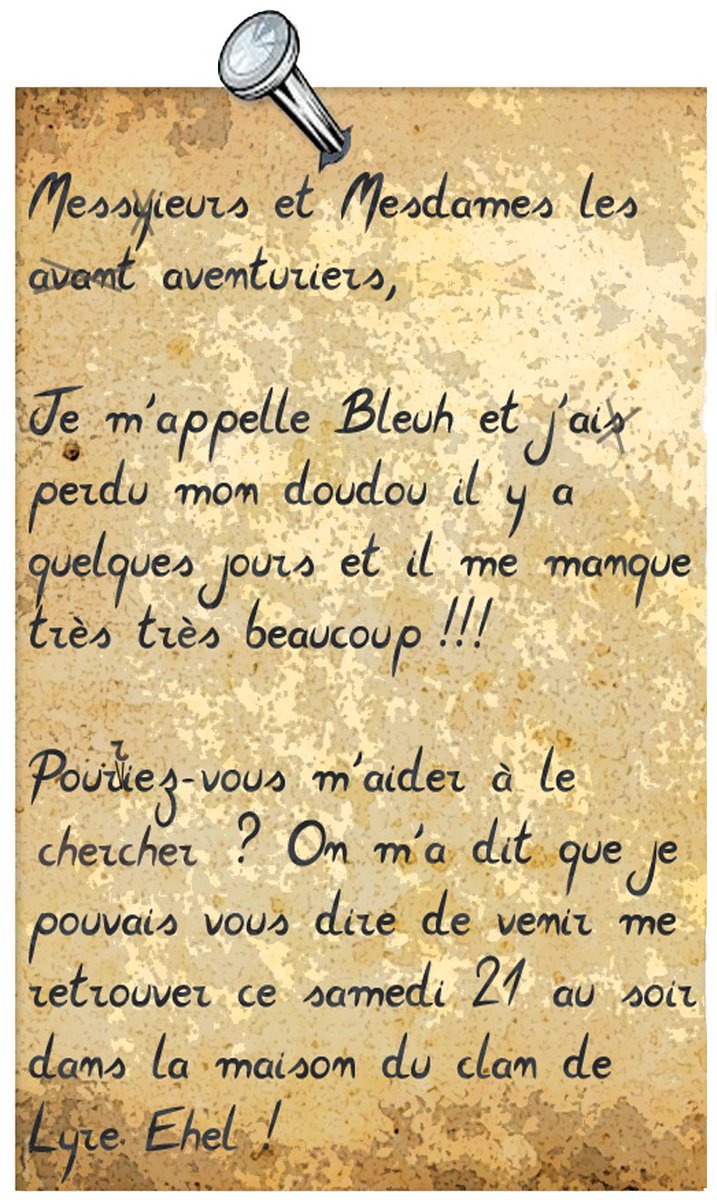 Messyieurs et Mesdames les
avant aventuriers,
Je m'appelle Bleuh et j'ais
perdu mon doudou il y a
quelques jours et il me manque
très très beaucoup !!!
Pourriez-vous m'aider à le
chercher ? On m'a dit que je
pouvais vous dire de venir me
retrouver ce samedi 21 au soir
dans la maison du clan de
Lyre Ehel !